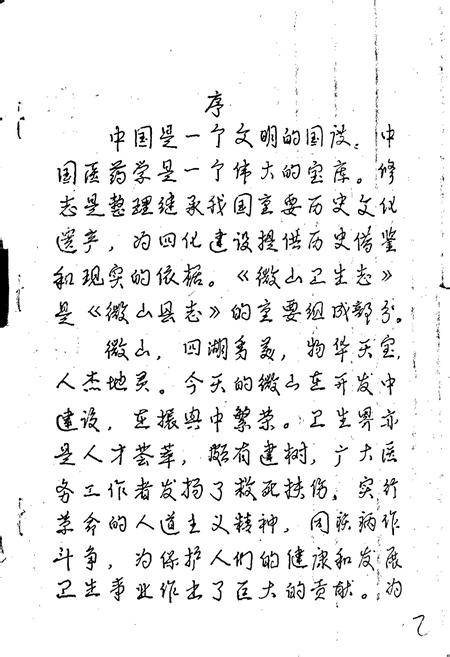 序
中国是一个文明的国度。中
国医药学是一个伟大的宝库。修
志是整理继承我国重要历史文化
遗产，为四化建设提供历史借鉴
和现实的依据。《微山卫生志》
是《微山县志》的重要组成部分。
微山，四湖秀美，物华天宝，
人杰地灵。今天的微山在开发中
建设，在振兴中繁荣。卫生界亦
是人才荟萃，颇有建树，广大医
务工作者发扬了救死扶伤，实行
革命的人道主义精神，同疾病作
斗争，为保护人们的健康和发展
卫生事业作出了巨大的贡献。为